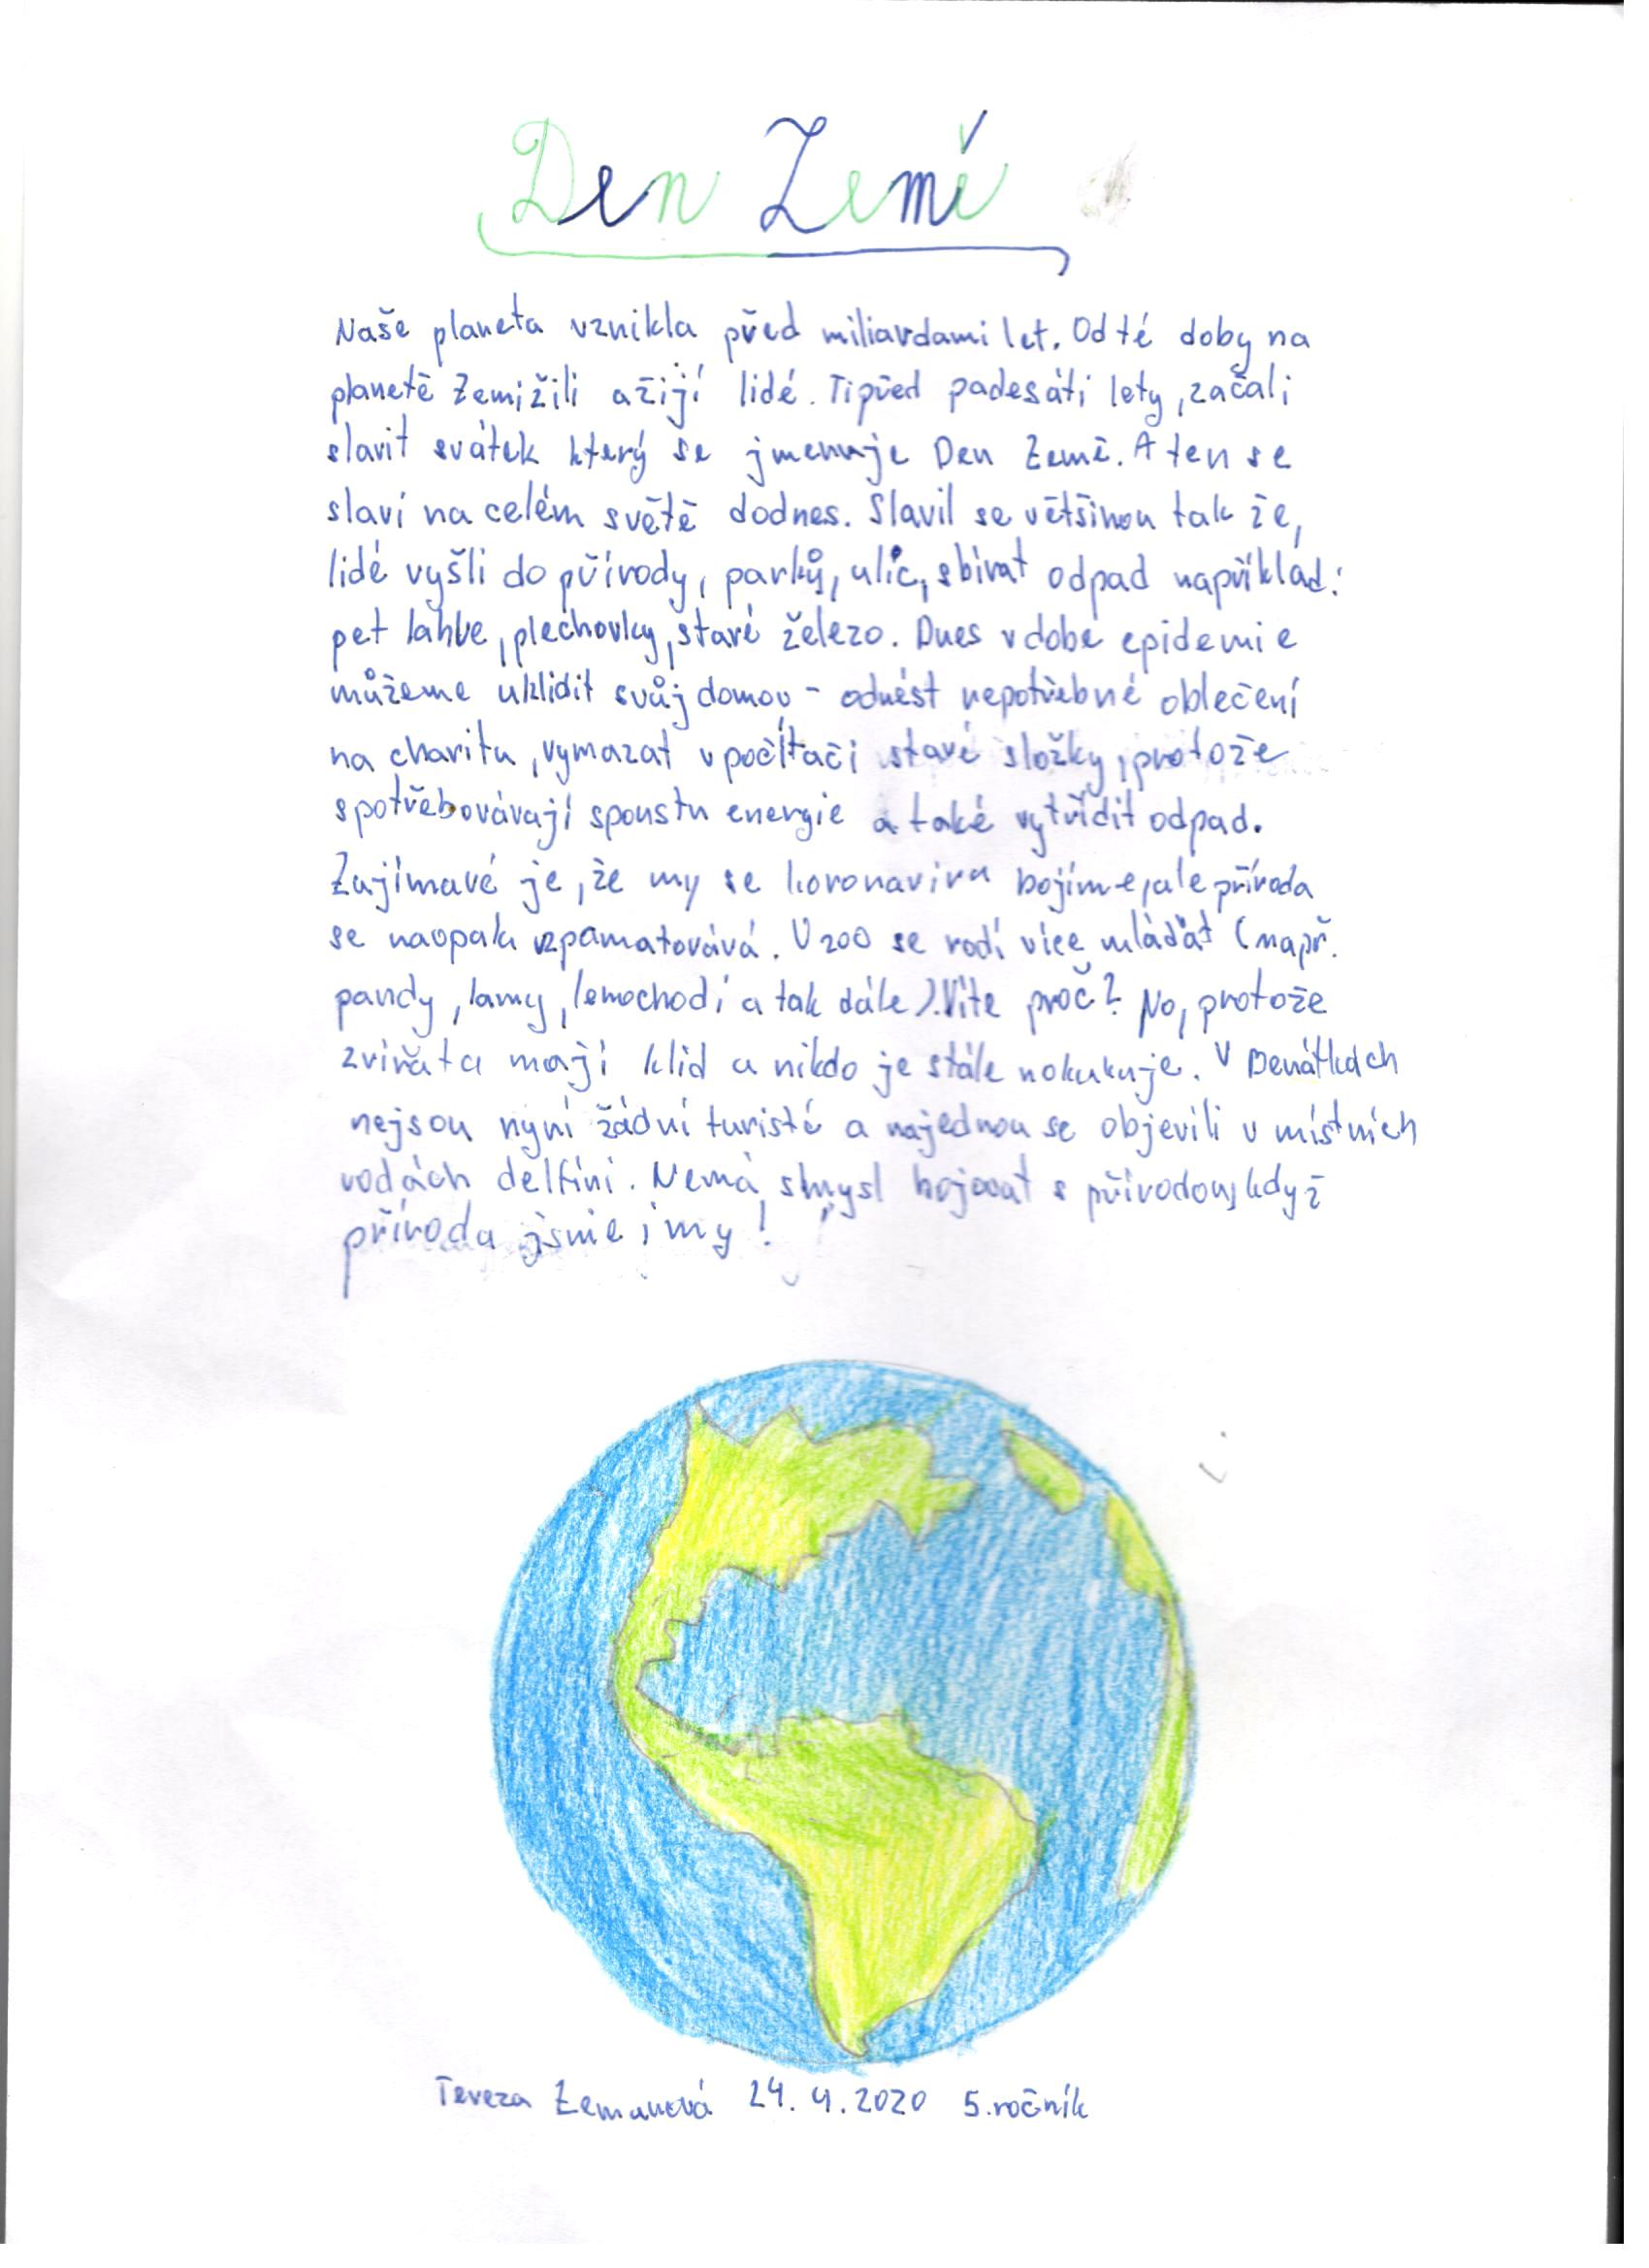 Den Země
Naše planeta vznikla před miliardami let. Od té doby na
planetě Zemi žili a žijí lidé. Ti před padesáti lety, začali
slavit svátek který se jmenuje Den Země. A ten se
slaví na celém světě dodnes. Slavil se většinou tak že,
lidé vyšli do přírody, parků, ulic, sbírat odpad například:
pet lahve, plechovky, staré železo. Dnes v době epidemie
můžeme uklidit svůj domov - odnést nepotřebné oblečení
na charitu, vymazat v počítači staré složky, protože
spotřebovávají spoustu energie a také vytřídit odpad.
Zajímavé je, že my se koronaviru bojíme, ale příroda
se naopak vzpamatovává. V zoo se rodí více mláďat (např.
pandy, lamy, lemochodi a tak dále). Víte proč? No, protože
zvířata mají klid a nikdo je stále nokukuje. V Benátkách
nejsou nyní žádní turisté a najednou se objevili v místních
vodách delfíni. Nemá smysl bojovat s přírodou, když
příroda jsme i my!
Tereza Zemanová 24. 4. 2020 5. ročník